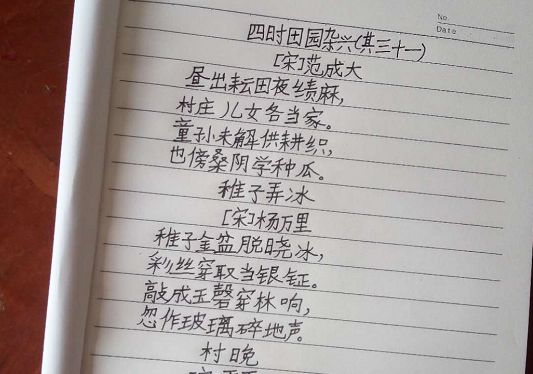 No.
Date
四时田园杂兴(其三十一)
[宋]范成大
昼出耘田夜绩麻,
村庄儿女各当家。
童孙未解供耕织,
也傍桑阴学种瓜。
稚子弄冰
[宋]杨万里
稚子金盆脱晓冰,
彩丝穿取当银钲。
敲成玉磬穿林响,
忽作玻璃碎地声。
村晚